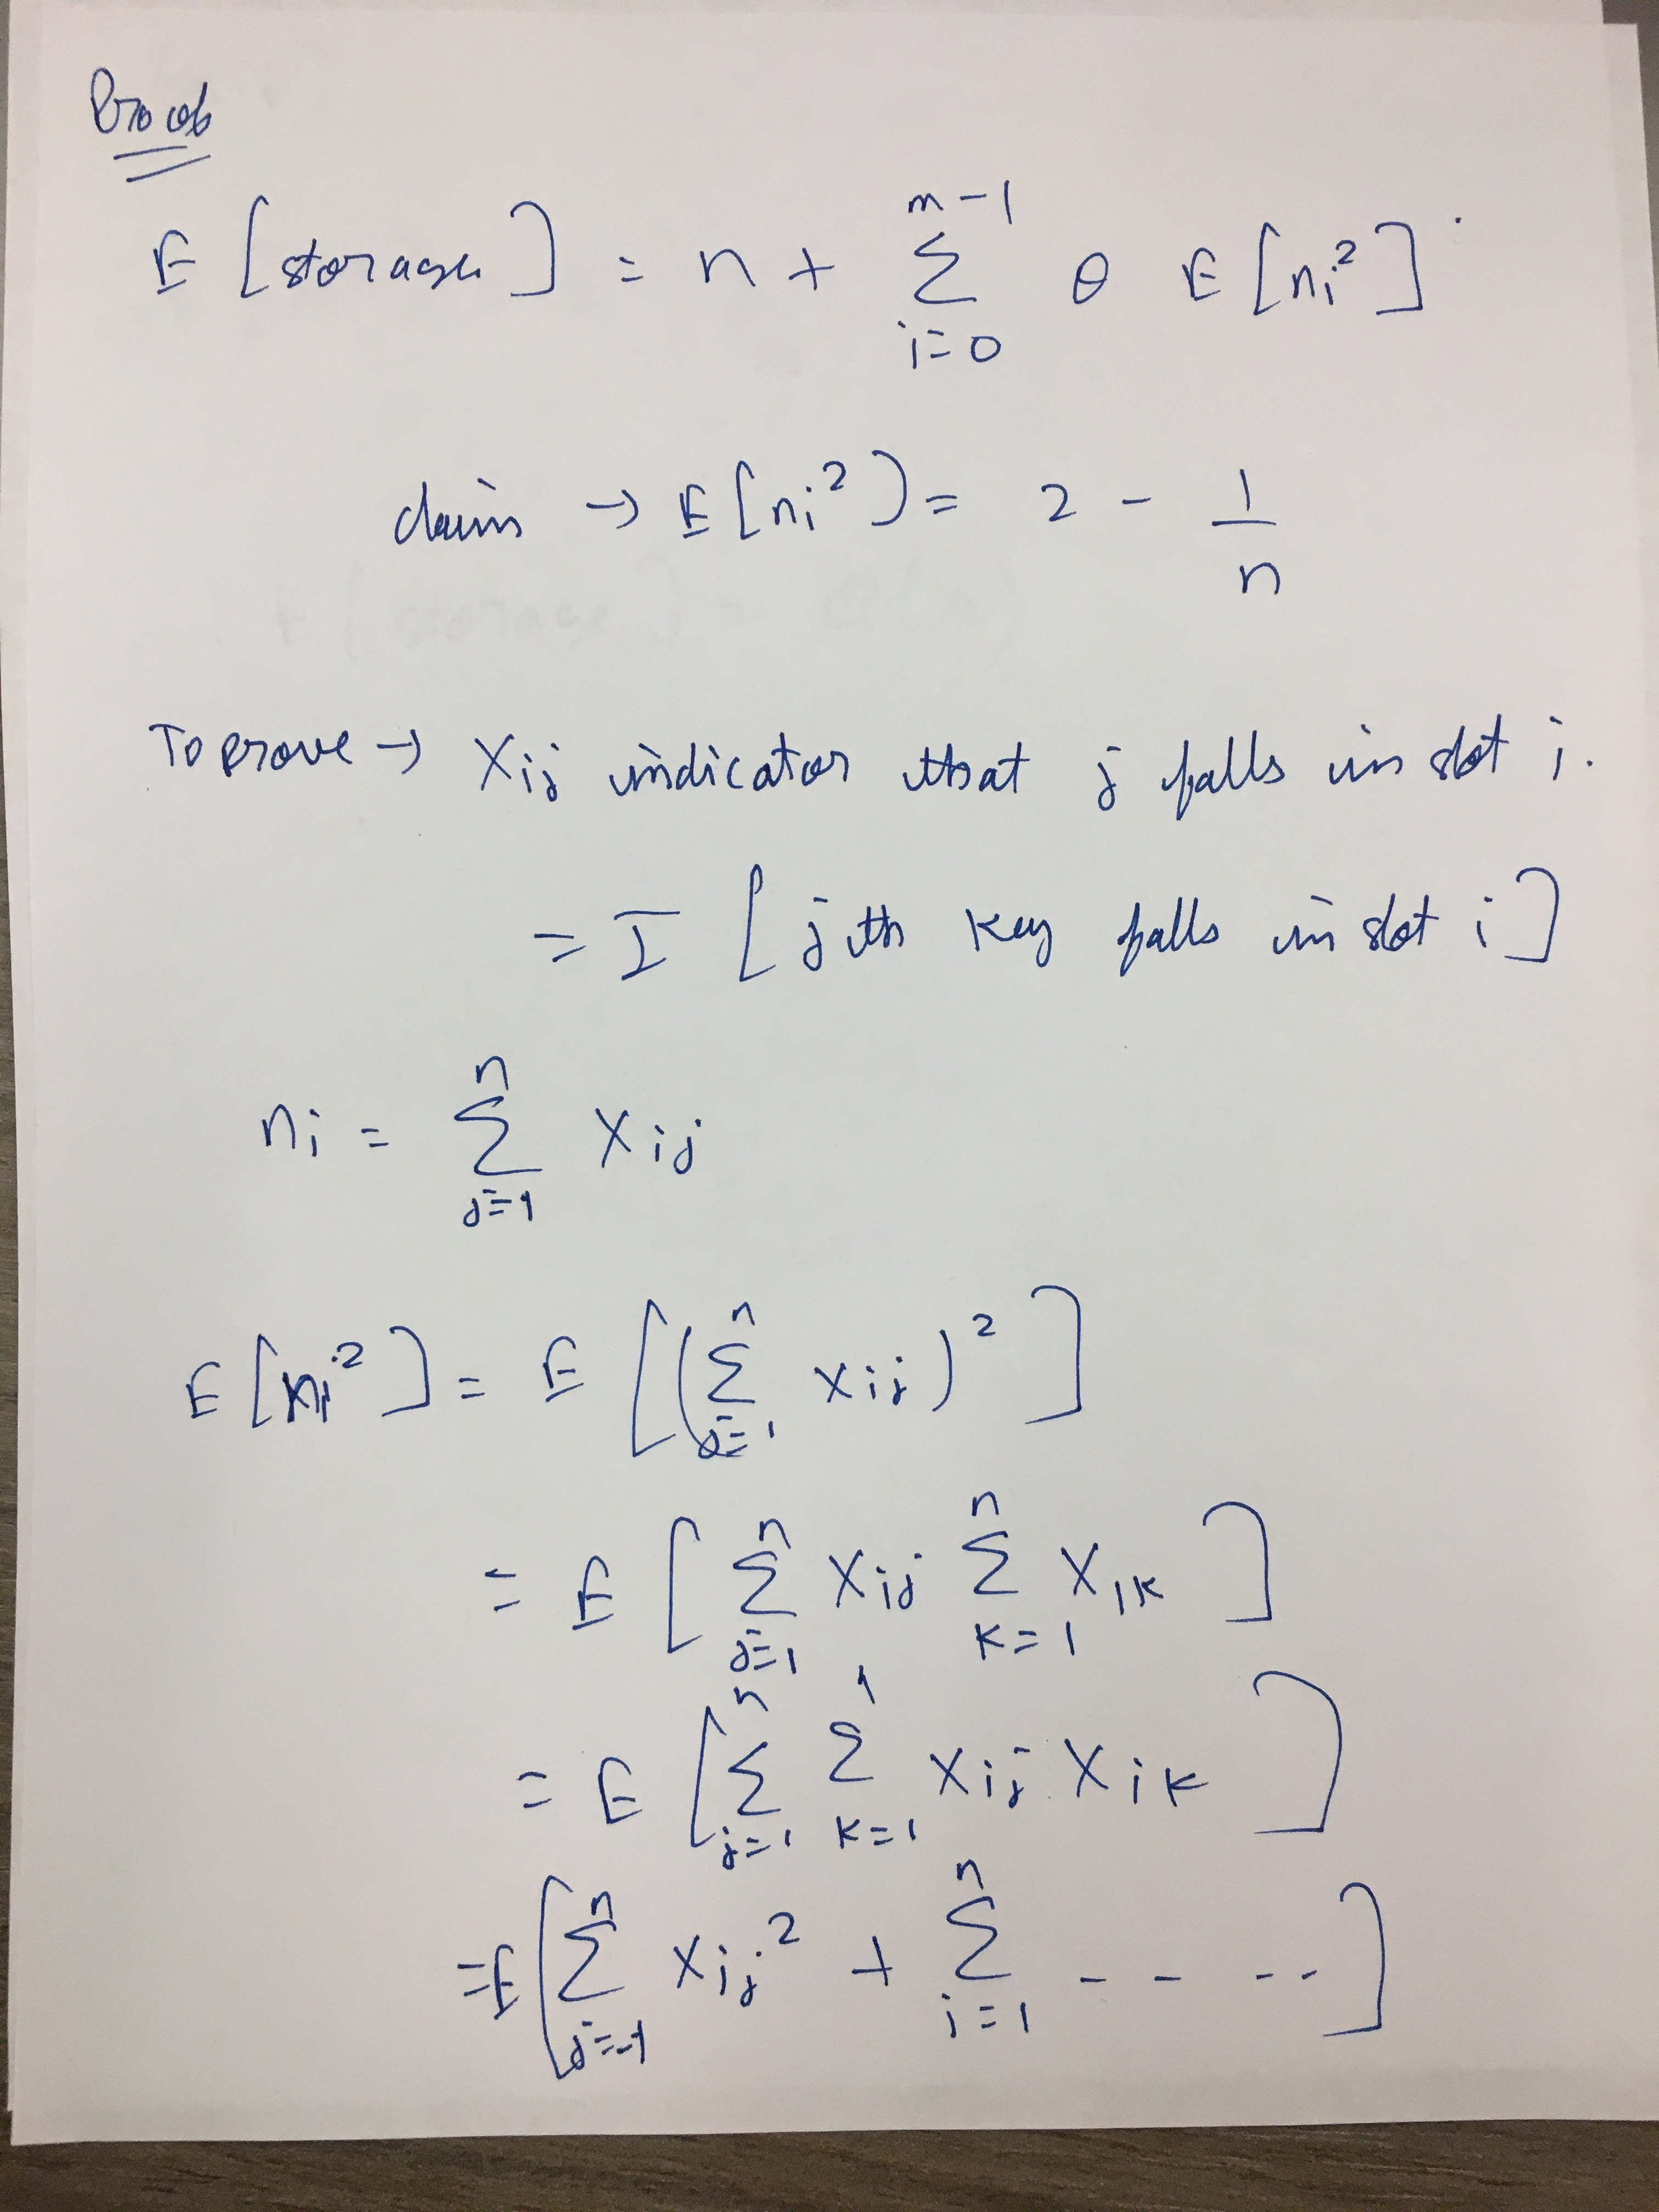 Proof
E [storage] = n + Σ_{i=0}^{m-1} θ E[n_i²]
claim → E[n_i²) = 2 - 1/n
To prove → X_ij indicator that j falls in slot i.
= I [jth key falls in slot i]
n_i = Σ_{j=1}^{n} X_ij
E[n_i²] = E[(Σ_{j=1}^{n} X_ij)²]
= E[Σ_{j=1}^{n} X_ij Σ_{k=1}^{n} X_ik]
= E[Σ_{j=1}^{n} Σ_{k=1}^{n} X_ij X_ik]
= E[Σ_{j=1}^{n} X_ij² + Σ_{i=1}^{n} - - - -]